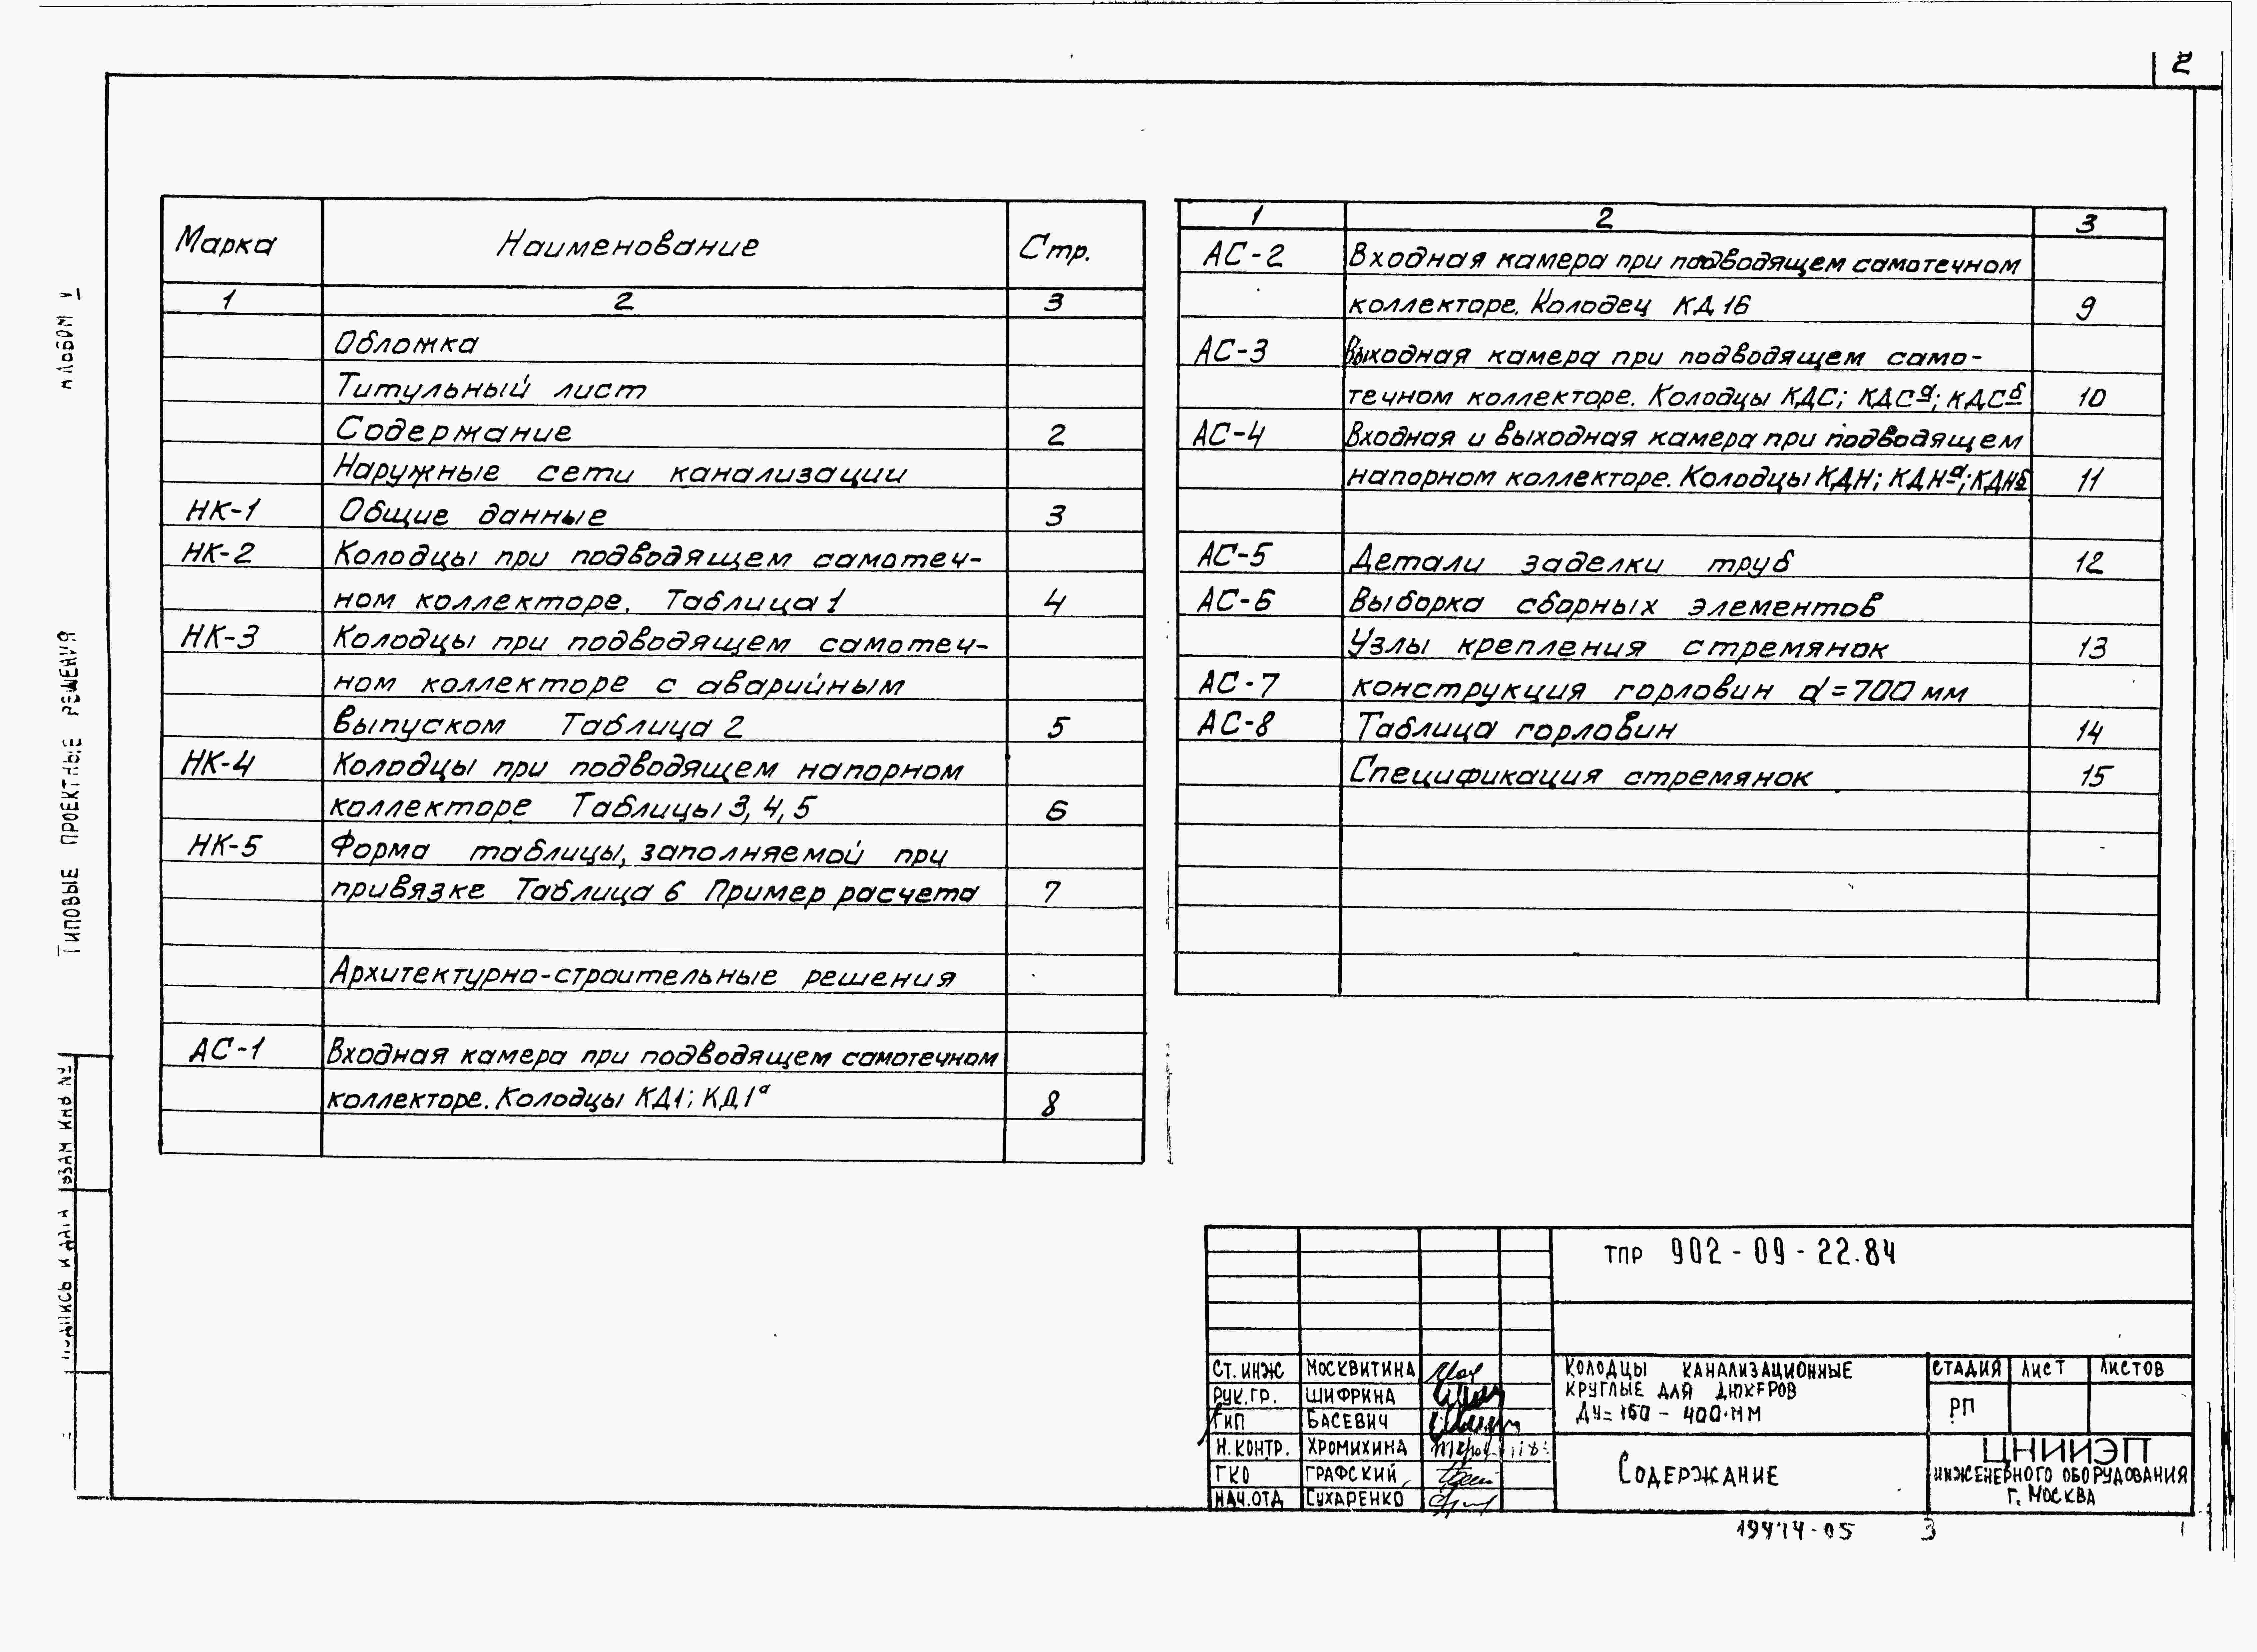 2
Альбом V
Типовые проектные решения
Взам инв №
Подпись и дата
Марка Наименование Стр.
1 2 3
Обложка
Титульный лист
Содержание 2
Наружные сети канализации
НК-1 Общие данные 3
НК-2 Колодцы при подводящем самотеч-
ном коллекторе. Таблица 1 4
НК-3 Колодцы при подводящем самотеч-
ном коллекторе с аварийным
выпуском Таблица 2 5
НК-4 Колодцы при подводящем напорном
коллекторе Таблицы 3, 4, 5 6
НК-5 Форма таблицы, заполняемой при
привязке Таблица 6 Пример расчета 7
Архитектурно-строительные решения
АС-1 Входная камера при подводящем самотечном
коллекторе. Колодцы КД1; КД1ᵃ 8
1 2 3
АС-2 Входная камера при подводящем самотечном
коллекторе. Колодец КД 16 9
АС-3 Выходная камера при подводящем само-
течном коллекторе. Колодцы КДС; КДСᵃ; КДСᵟ 10
АС-4 Входная и выходная камера при подводящем
напорном коллекторе. Колодцы КДН; КДНᵃ; КДНᵟ 11
АС-5 Детали заделки труб 12
АС-6 Выборка сборных элементов
Узлы крепления стремянок 13
АС-7 конструкция горловин d=700 мм
АС-8 Таблица горловин 14
Спецификация стремянок 15
ТПР 902-09-22.84
Ст. инж Москвитина
Рук. гр. Шифрина
Гип Басевич
Н. контр. Хромихина
ГКО Графский
Нач. отд Сухаренко
Колодцы канализационные
круглые для дюкеров
Ду=150-400 мм
Содержание
Стадия Лист Листов
РП
ЦНИИЭП
инженерного оборудования
г. Москва
19474-05 3